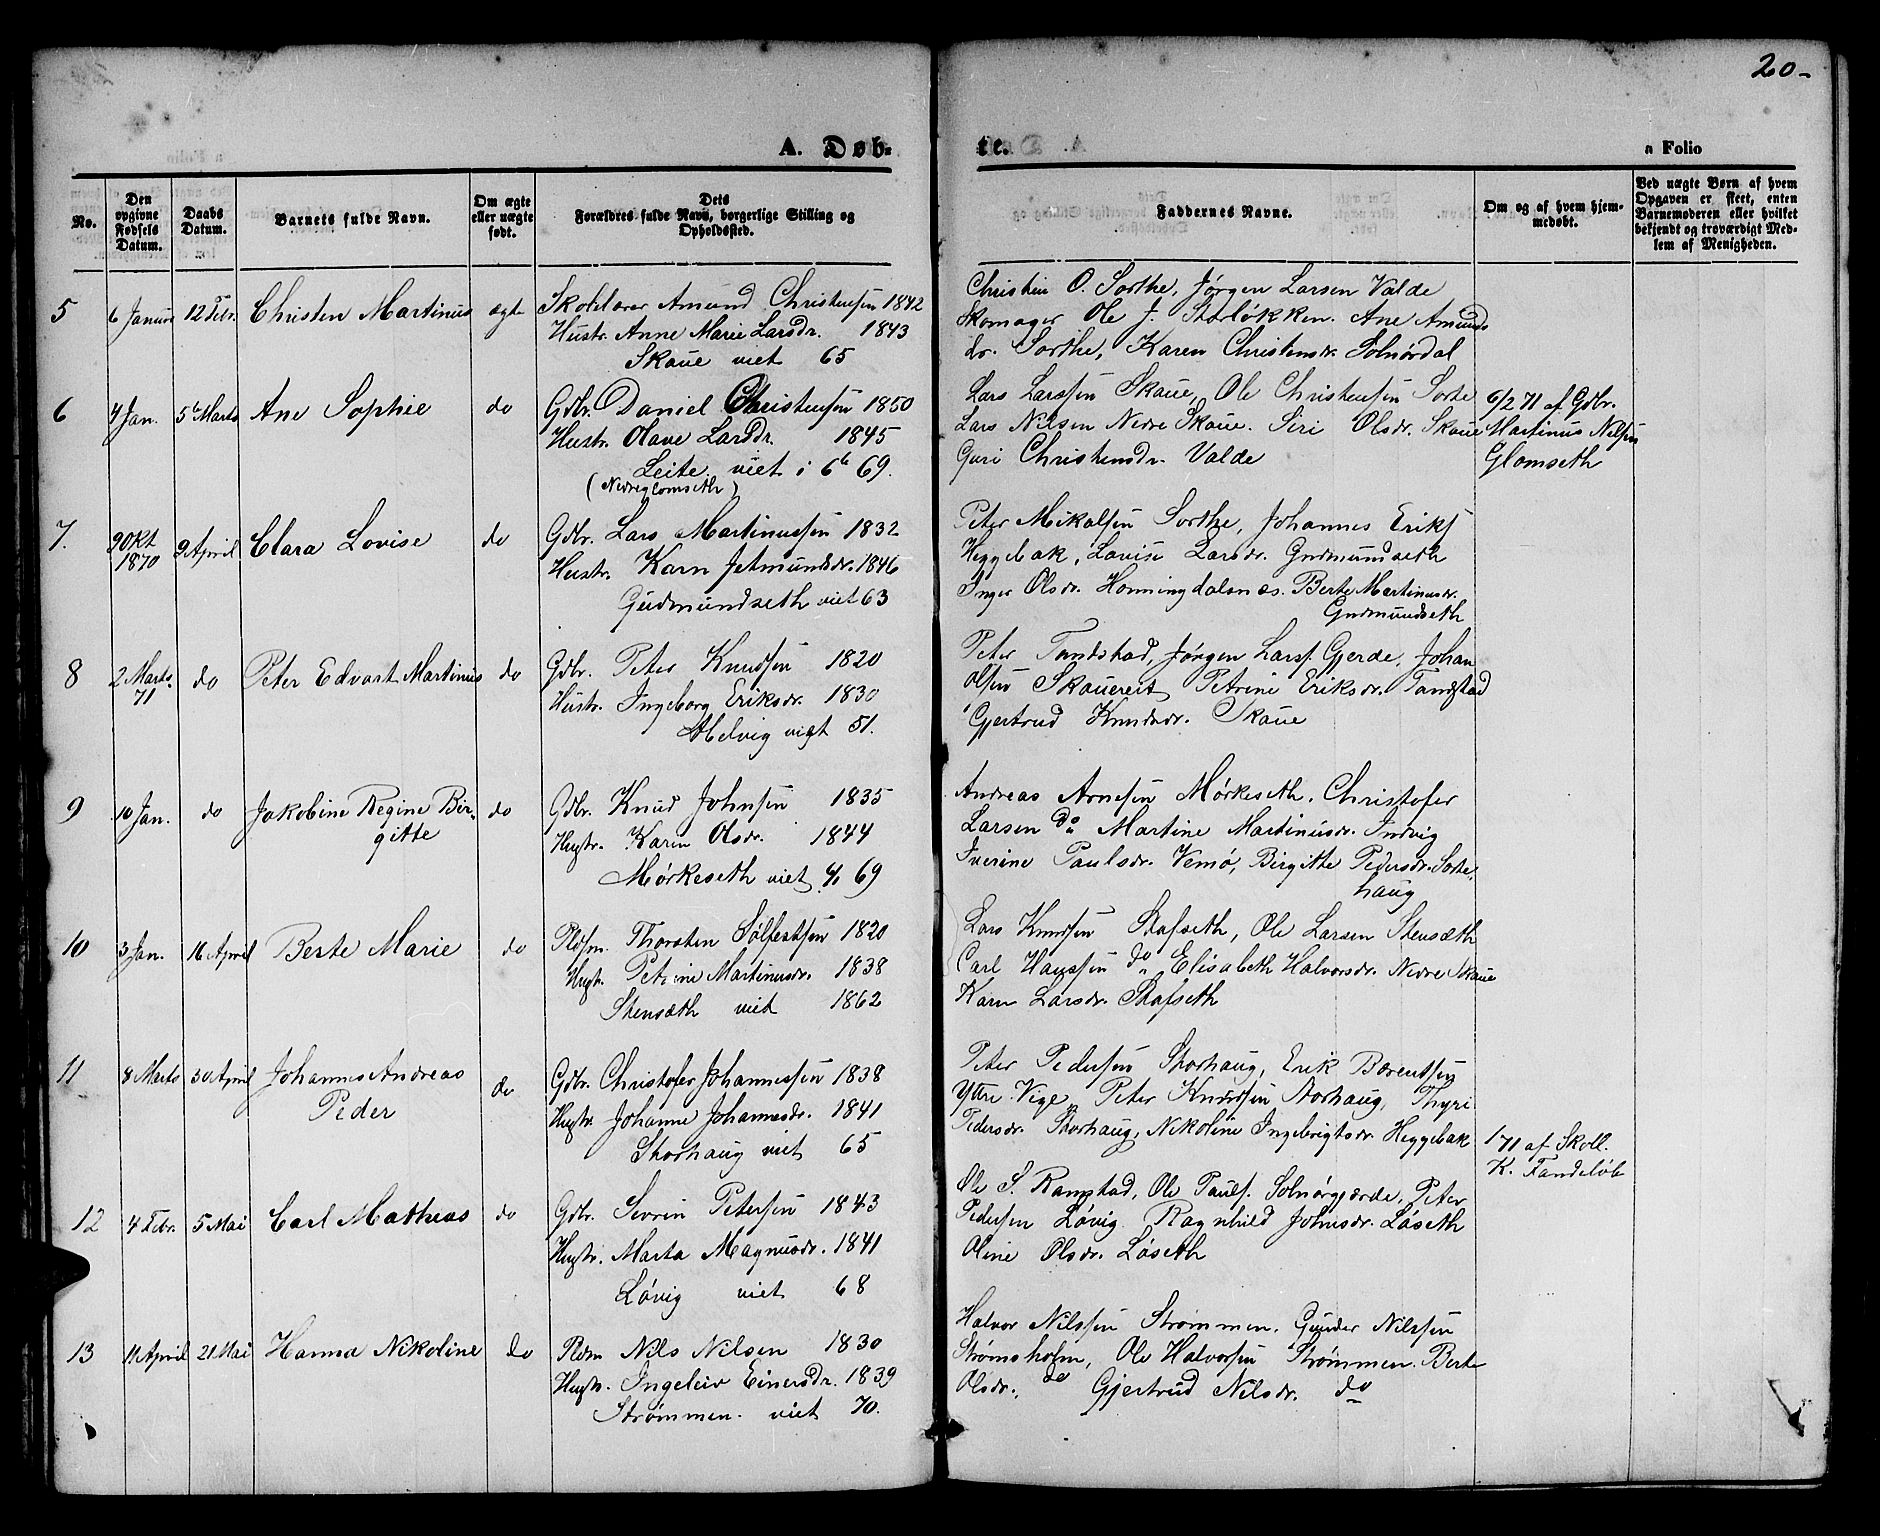 20-
A. Døb-
te.
a Folio
No.
Den opgivne Fødsels Datum.
Daabs Datum.
Barnets fulde Navn.
Om ægte eller uægte født.
Dets Forældres fulde Navn, borgerlige Stilling og Opholdssted.
Faddernes Navne.
Om og af hvem hjem-medøbt.
Ved uægte Børn af hvem Opgaven er skeet, enten Barnemoderen eller hvilket bekjendt og troværdigt Med-lem af Menigheden.
5 6 Januar 12 Febr. Christen Martinus ægte Skolelærer Amund Christensen 1842
Hustr. Anne Marie Larsdr. 1843
Skaue viet 65
Christen O. Sorthe, Jørgen Larsen Valde
Skomager Ole J. Storløkken. Ane Amunds
dr. Sorthe, Karen Christensdr. Solnørdal
6 4 Jan. 5te Marts Ane Sophie do Gdbr. Daniel Christensen 1850
Hustr. Olave Larsdr. 1845
Leite viet i 69.
(Nedreglomseth)
Lars Larssen Skaue, Ole Christensen Sorte
Lars Nilsen Nedre Skaue. Siri Olsdr. Skaue
Guri Christensdr. Valde
6/2 71 af Gdbr.
Martinus Nilsen
Glomseth
7. 9 Okt 1870 9 April Clara Lovise do Gdbr. Lars Martinussen 1832
Hustr. Karn Jetmundsdr. 1846
Gudmundseth viet 63
Peter Mikalsen Sorthe, Johannes Eriks
Heggebak, Lovise Larsdr. Gudmundseth
Inger Olsdr. Honningdalsnæs. Berte Martinusdr.
Gudmundseth
8 2 Marts 71 do Peter Edvart Martinus do Gdbr. Peter Knudsen 1820
Hustr. Ingeborg Eriksdr. 1830
Helvig viet 51.
Peter Tandstad, Jørgen Lars. Gjerde, Johan
Olsen Skauereit Petrine Eriksdr. Tandstad
Gjertrud Knudsdr. Skaue
9 10 Jan. do Jakobine Regine Bir-
gitte do Gdbr. Knud Johnsen 1835
Hustr. Karen Olsdr. 1844
Mørkeseth viet 69
Andreas Arnesen Mørkeseth. Christofer
Larsen do Martine Martinusdr. Indvig
Iverine Paulsdr. Vemø, Birgitte Pedersdr. Sorte-
haug
10 3 Jan. 16 April Berte Marie do Pldsm. Thorsten Sølfestsen 1820
Hustr. Petrine Martinusdr. 1838
Stensæth viet 1862
Lars Knudsen Stafseth, Ole Larsen Stensæth
Carl Hanssen do Elisabeth Halvorsdr. Nedre Skaue
Karn Larsdr. Stafseth
11 8 Marts 30 April Johannes Andreas
Peder do Gdbr. Christofer Johannessen 1838
Hustr. Johanne Johannesdr. 1841
Storhaug viet 65
Peter Pedersen Storhaug, Erik Bærentsen
Ytre Vige Peter Knudsen Storhaug, Thyri
Pedersdr. Storhaug, Nikoline Ingebrigtsdr. Heggebak
71 af Skoll.
K. Tandeløb
12 4 Febr. 5 Mai Carl Mathias do Gdbr. Sevrin Petersen 1843
Hustr. Marta Magnusdr. 1841
Løvig viet 68
Ole S. Ramstad, Ole Pauls. Solnørgjærde, Peter
Pedersen Løvig Ragnhild Johnsdr. Løseth
Oline Olsdr. Løseth
13 11 April 21 Mai Hanna Nikoline do Pldsm Nils Nilsen 1830
Hustr. Ingeleiv Einersdr. 1839
Strømmen. viet 70.
Halvor Nilssen Strømmen. Gunder Nilssen
Strømsholm, Ole Halvorsen Strømmen. Berte
Olsdr. do Gjertrud Nilsdr. do